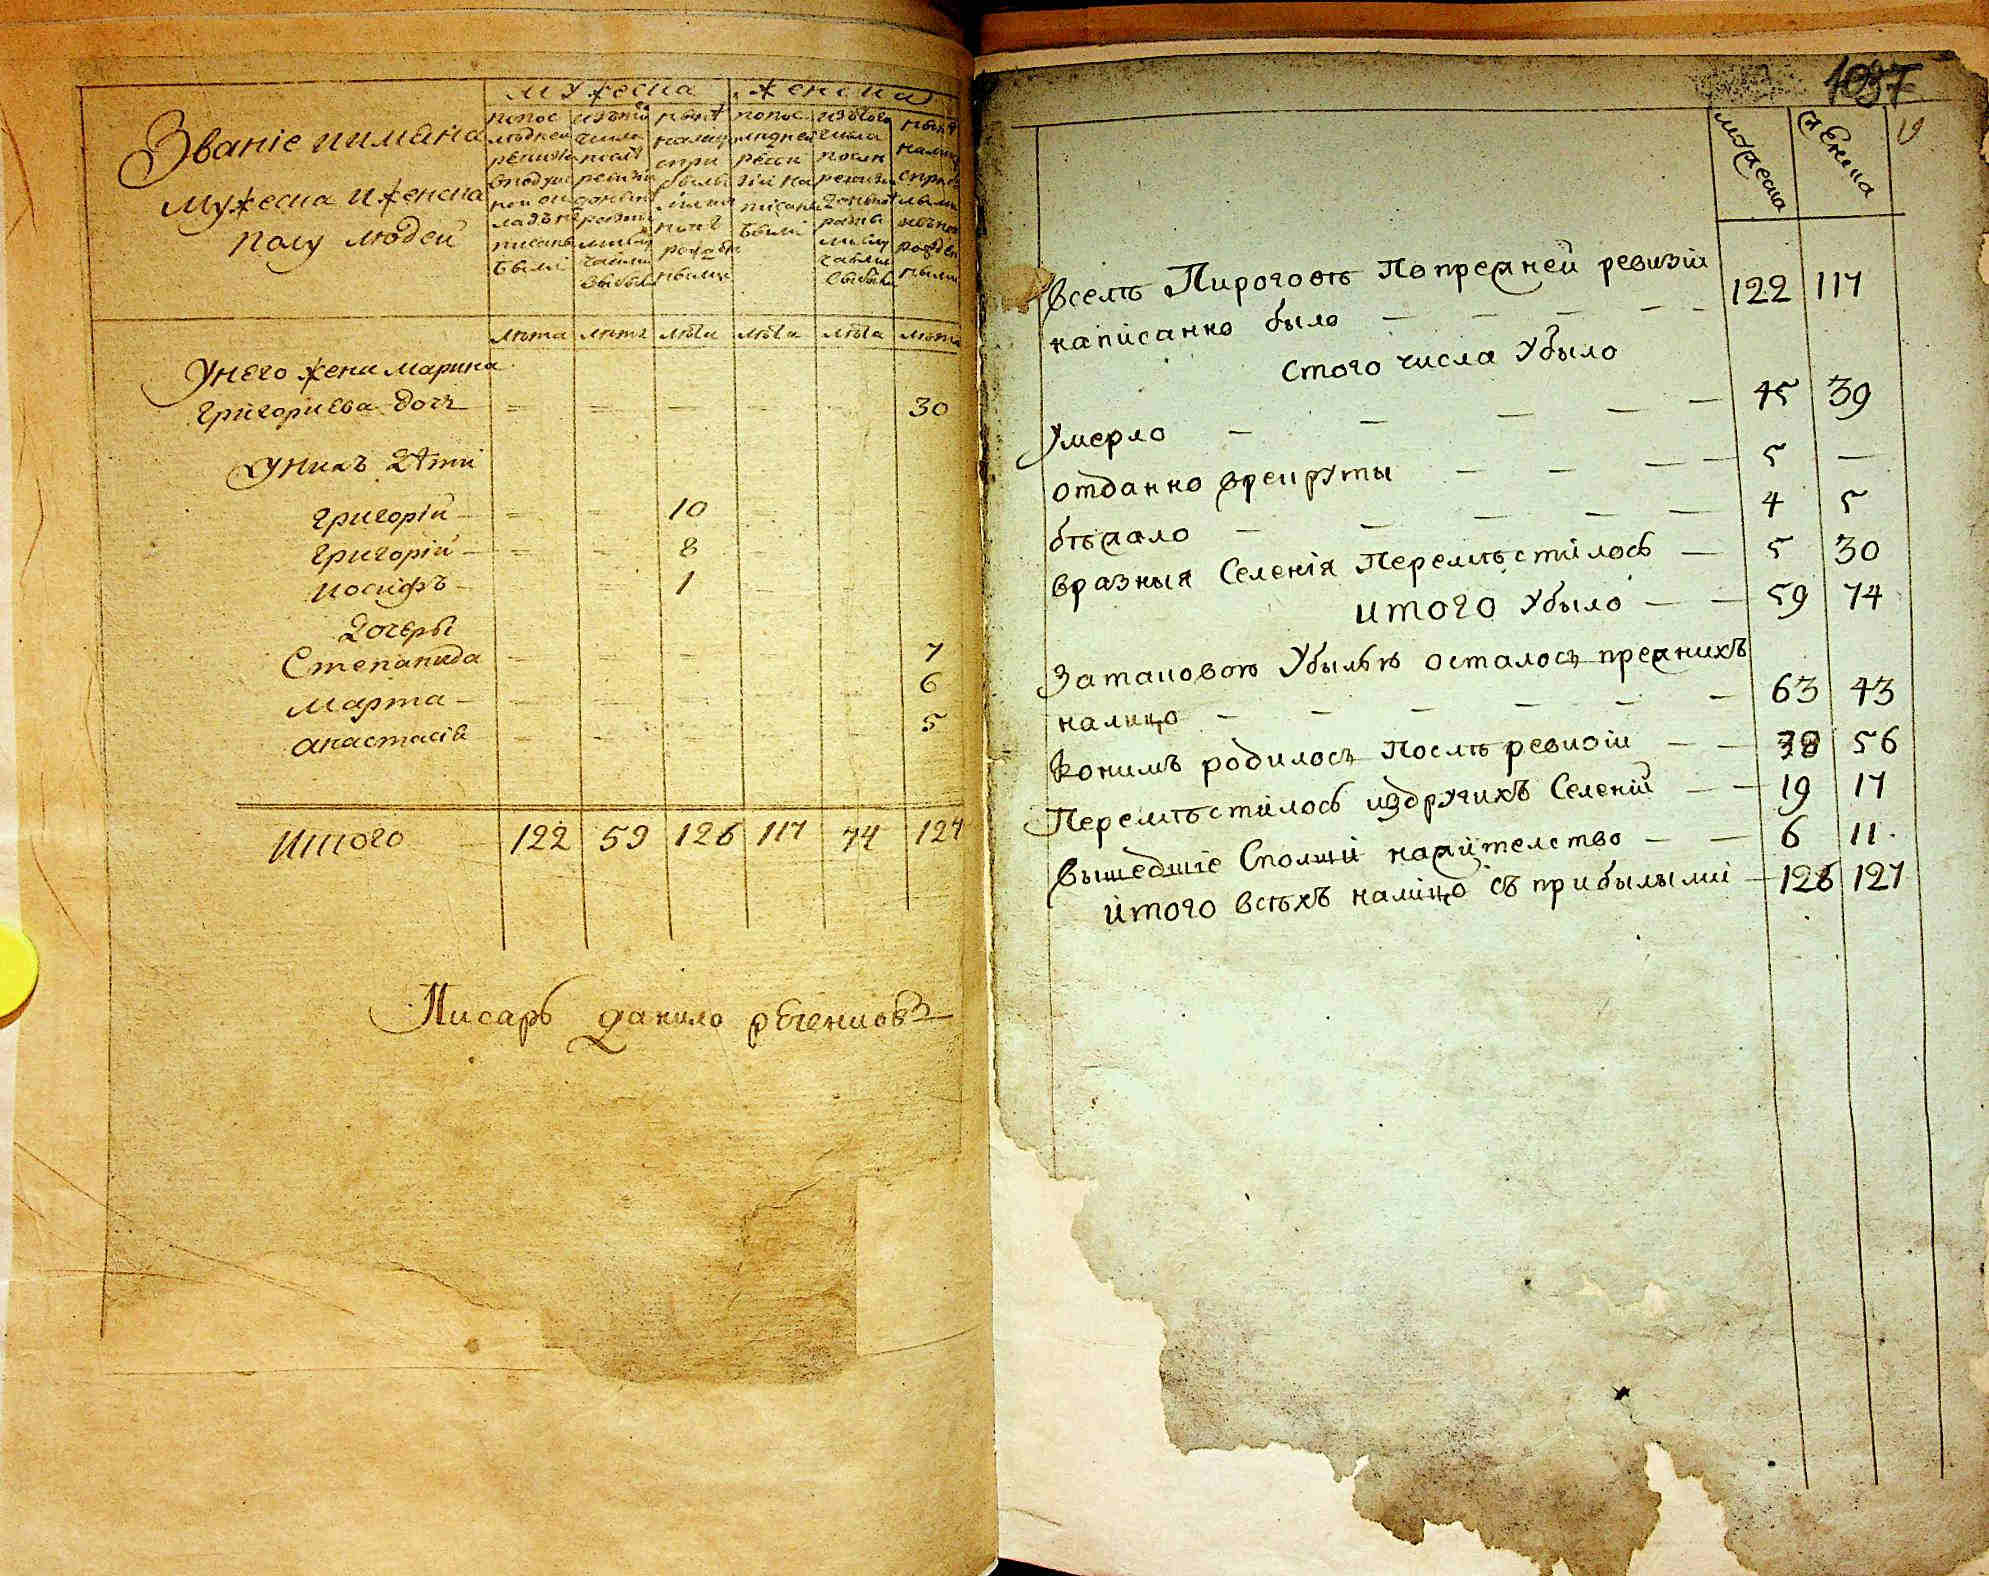 мужеска женска
Званіе иимяна
мужеска иженска
полу людей
попос
лѣдней
ревизіи
вподуш
ной ок
ладъ на
писаны
были
изътого
числа
послѣ
ревизіи
выбыл
нынѣ
налицо
спри
былы
попос
лѣдней
реви
зіи на
писаны
были
изътого
числа
послѣ
ревизіи
выбыли
нынѣ
налицо
лѣта лѣта лѣта лѣта лѣта лѣта
Унего жена марина
григориева дочъ — — — — — 30
Унихъ дѣти
григорій — — 10
григорій — — 8
иосифъ — — 1
дочеры
Степанида — — — — — 7
марта — — — — — 6
анастасія — — — — — 5
Итого 122 59 126 117 74 127
Писарь данило
1037
19
мужеска женска
всемъ Пироговъ Попрежней ревизіи
напісанно было — — — — — 122 117
стого числа Убыло
Умерло — — — — — 45 39
отданно врекруты — — — — 5 —
бѣжало — — — — — 4 5
вразныя Селенія Перемѣстилось — 5 30
итого Убыло — — 59 74
Затаковою Убылью осталось прежнихъ
налицо — — — — — — 63 43
Конимъ родилось Послѣ ревизіи — — 38 56
Перемѣстилось издругихъ Селеній — — 19 17
вышедшіе Сполши нажителство — — 6 11.
итого всѣхъ налицо съ прибылыми — 126 127